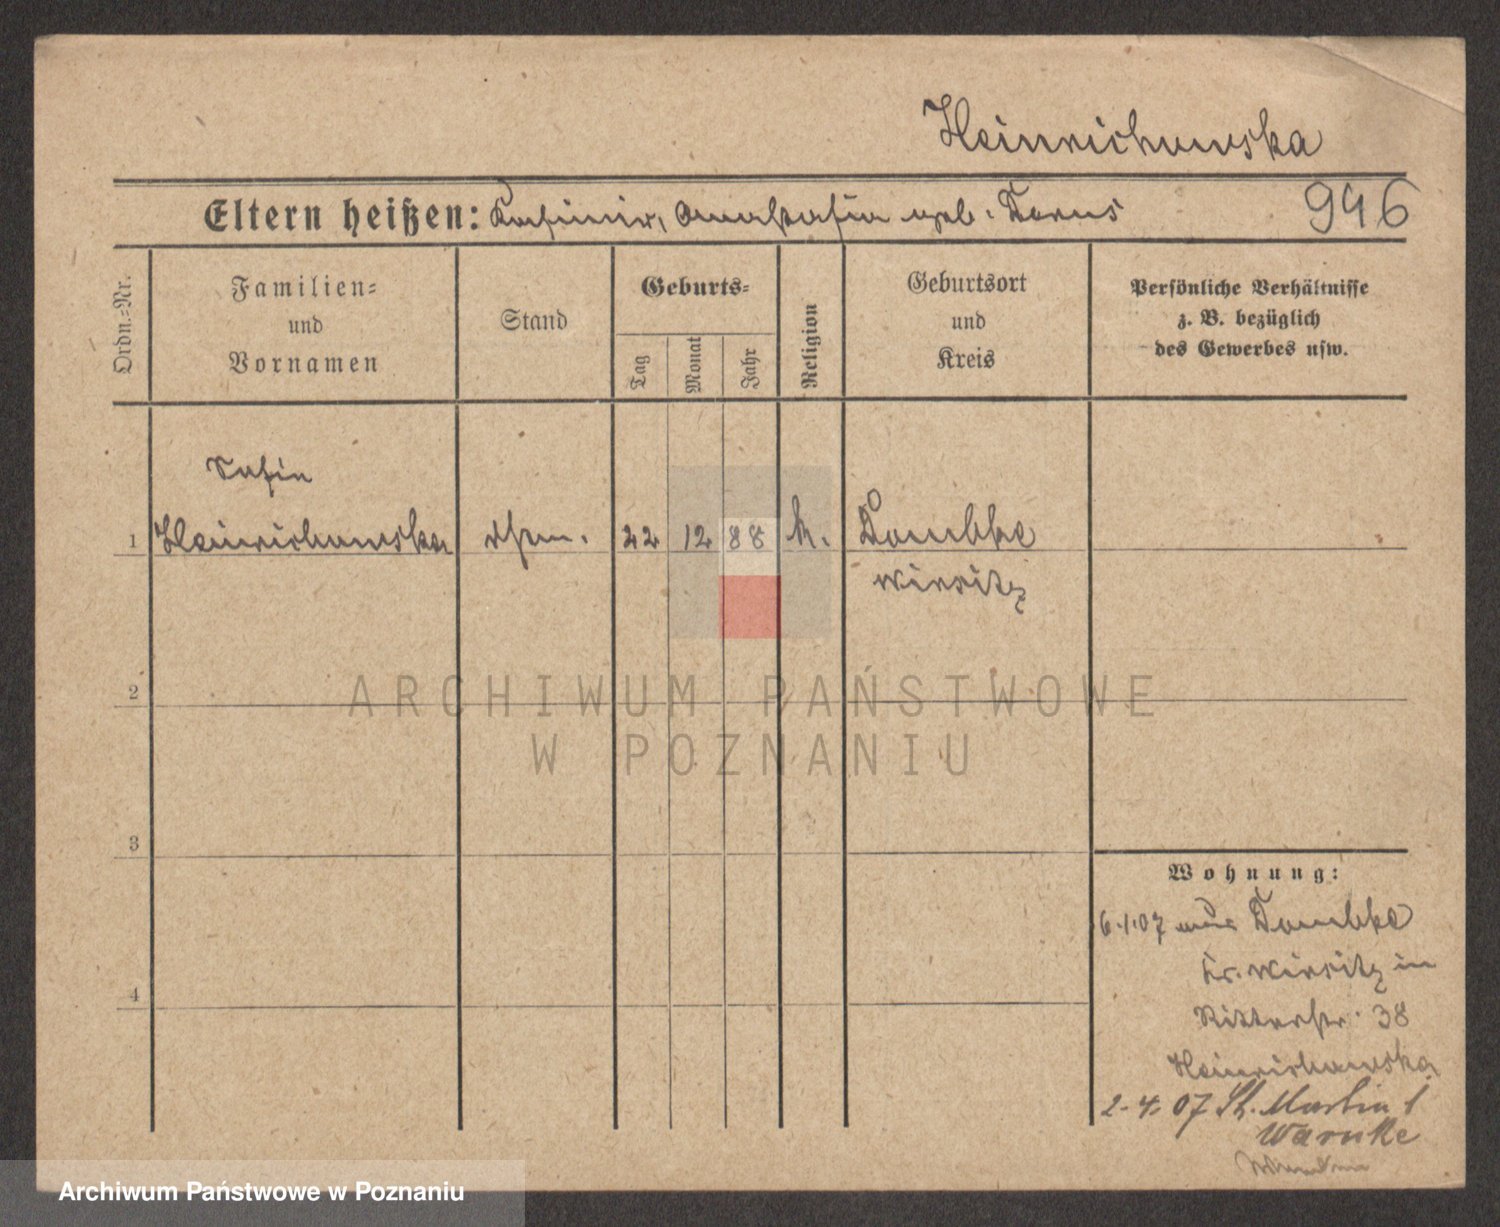 Heinrichowska
Eltern heißen: Kasimir, Anastasia geb. Torus
946
Ordn.-Nr.
Familien-
und
Vornamen
Stand
Geburts-
Tag
Monat
Jahr
Religion
Geburtsort
und
Kreis
Persönliche Verhältnisse
z. B. bezüglich
des Gewerbes usw.
Sofia
1 Heinrichowska 22 12 88 k. Dombke
Wirsitz
2
ARCHIWUM PAŃSTWOWE
W POZNANIU
3
Wohnung:
6.1.07 aus Dombke
Kr. Wirsitz in
4
Ritterstr. 38
Heinrichowska
2.4.07 St. Martin 1
Warnke
Archiwum Państwowe w Poznaniu